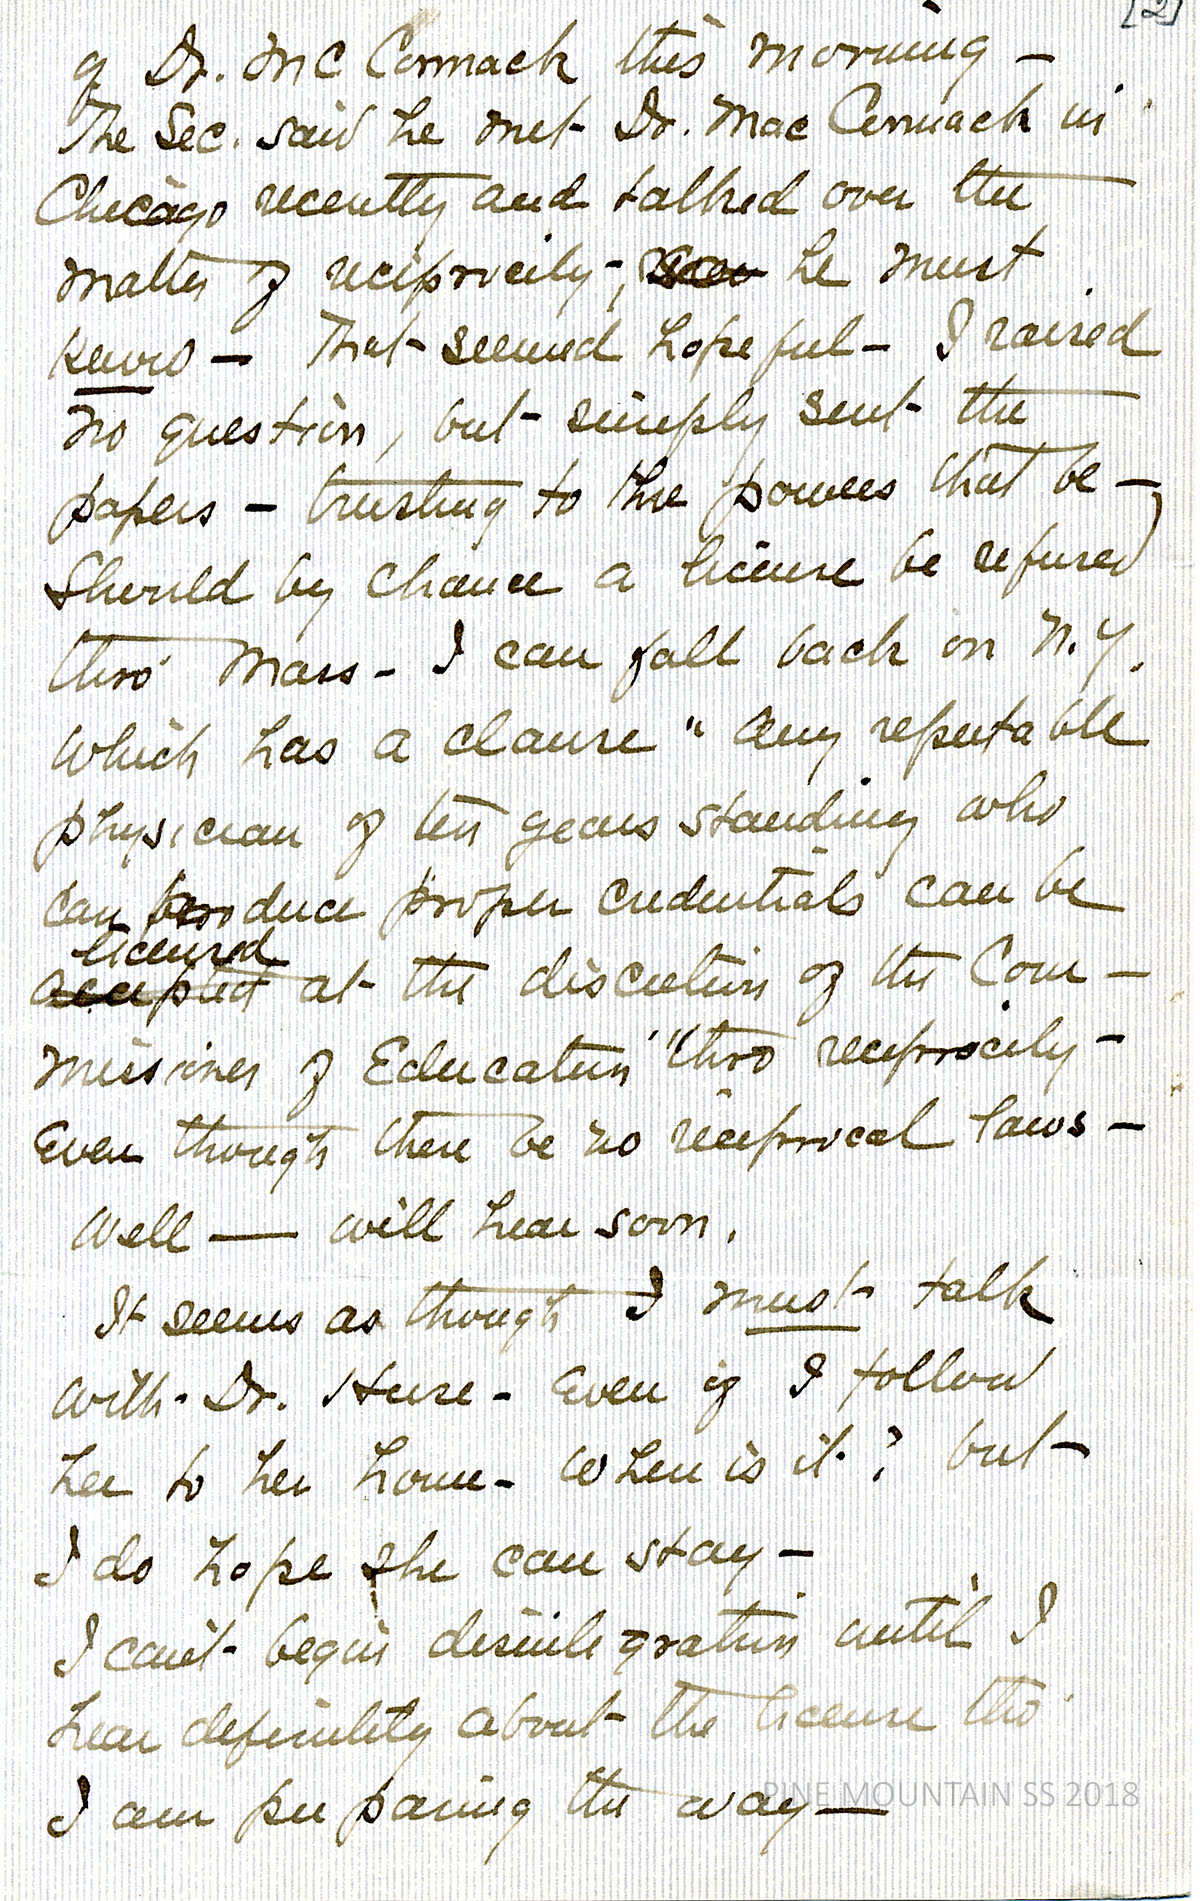 [2]
of Dr. McCormack this morning —
The Sec. said he met Dr. MacCormack in
Chicago recently and talked over the
matter of reciprocity —, he must
know — That seemed hopeful — I raised
no question, but simply sent the
papers — trusting to the powers that be —
Should by chance a license be refused,
thro' Mass — I can fall back on N.Y.
which has a clause "any reputable
physician of ten years standing who
can produce proper credentials can be
licensed
accepted at the discretion of the Com —
missioner of Education" "thro reciprocity —
Even though there be no reciprocal laws —
Well — will hear soon.
It seems as though I must talk
with Dr. Huse — Even if I follow
her to her home — When is it? but
I do hope she can stay —
I can't begin disintegration until I
hear definitely about the license tho'
I am preparing the way —
PINE MOUNTAIN SS 2018